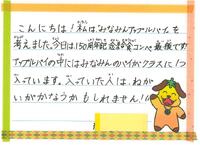 こんにちは！私は、みなみんアップルパイ。を
考えました。今日は150周年記念コンペ最優です
アップルパイの中にはみなみんのパイがクラスに1つ
入っています。入っていた人は、ねが
いがかなうかもしれません！